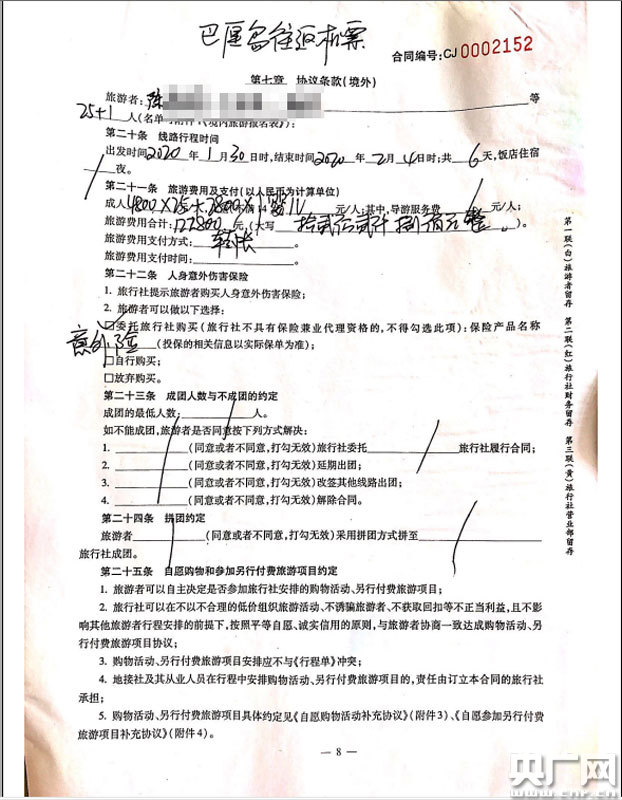 巴厘岛往返机票
合同编号:CJ 0002152
第七章 协议条款(境外)
旅游者:陈 等
25+1人(名单 附件:《境内旅游报名表》);
第二十条 线路行程时间
出发时间2020年1月30日 时,结束时间2020年2月4日 时;共6天,饭店住宿
/夜。
第二十一条 旅游费用及支付(以人民币为计算单位)
成人4800×25+2800×1 元/人;其中,导游服务费 / 元/人;
旅游费用合计:122800元(大写 拾贰万贰仟捌佰元整)。
旅游费用支付方式: 转帐 。
旅游费用支付时间: 。
第二十二条 人身意外伤害保险
1. 旅行社提示旅游者购买人身意外伤害保险;
2. 旅游者可以做以下选择:
☑委托旅行社购买(旅行社不具有保险兼业代理资格的,不得勾选此项):保险产品名称
意外险(投保的相关信息以实际保单为准);
□自行购买;
□放弃购买。
第二十三条 成团人数与不成团的约定
成团的最低人数: / 人。
如不能成团,旅游者是否同意按下列方式解决:
1. (同意或者不同意,打勾无效)旅行社委托 旅行社履行合同;
2. (同意或者不同意,打勾无效)延期出团;
3. (同意或者不同意,打勾无效)改签其他线路出团;
4. (同意或者不同意,打勾无效)解除合同。
第二十四条 拼团约定
旅游者 (同意或者不同意,打勾无效)采用拼团方式拼至
旅行社成团。
第二十五条 自愿购物和参加另行付费旅游项目约定
1. 旅游者可以自主决定是否参加旅行社安排的购物活动、另行付费旅游项目;
2. 旅行社可以在不以不合理的低价组织旅游活动、不诱骗旅游者、不获取回扣等不正当利益,且不影
响其他旅游者行程安排的前提下,按照平等自愿、诚实信用的原则,与旅游者协商一致达成购物活动、另
行付费旅游项目协议;
3. 购物活动、另行付费旅游项目安排应不与《行程单》冲突;
4. 地接社及其从业人员在行程中安排购物活动、另行付费旅游项目的,责任由订立本合同的旅行社
承担;
5. 购物活动、另行付费旅游项目具体约定见《自愿购物活动补充协议》(附件3)、《自愿参加另行付费
旅游项目补充协议》(附件4)。
— 8 —
第一联(白)旅游者留存 第二联(红)旅行社财务留存 第三联(黄)旅行社营业部留存
央广网
www.cnr.cn